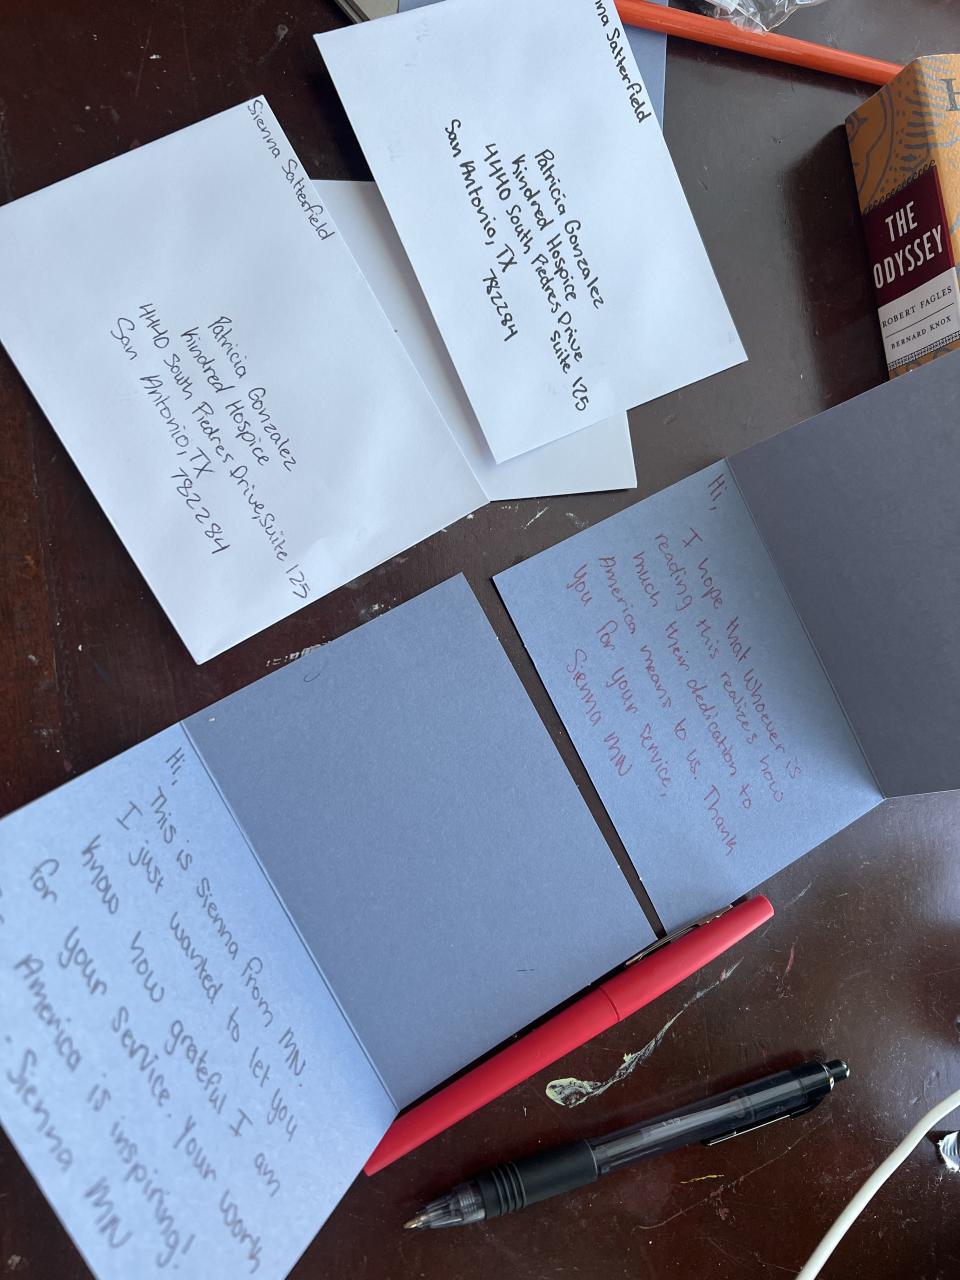 Sienna Satterfield
Patricia Gonzalez
Kindred Hospice
4440 South Piedres Drive, Suite 125
San Antonio, TX 782284
na Satterfield
Patricia Gonzalez
Kindred Hospice
4440 South Piedres Drive Suite 125
San Antonio, TX 782284
THE
ODYSSEY
ROBERT FAGLES
BERNARD KNOX
Hi,
I hope that whoever is
reading this realizes how
much their dedication to
America means to us. Thank
you for your service,
Sienna MN
Hi,
This is Sienna from MN.
I just wanted to let you
know how grateful I am
for your service. Your work
America is inspiring!
- Sienna MN